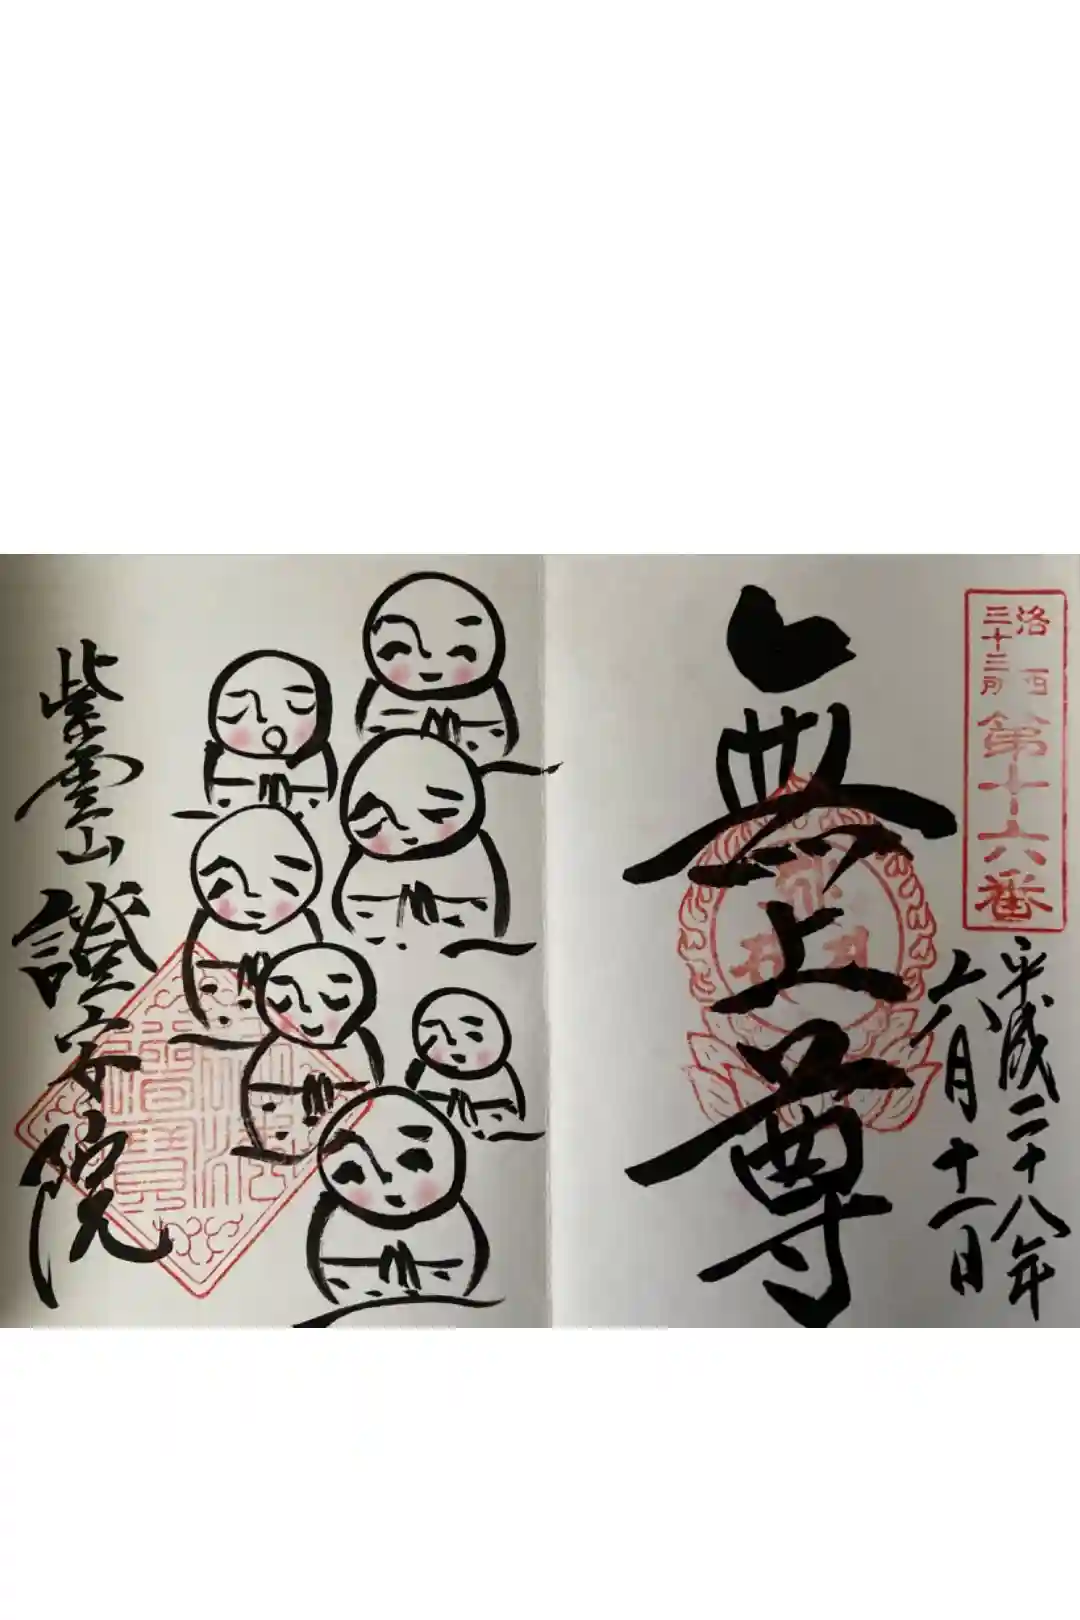 洛西
三十三所
第十六番
平成二十八年
六月十一日
無上尊
紫雲山
證安院